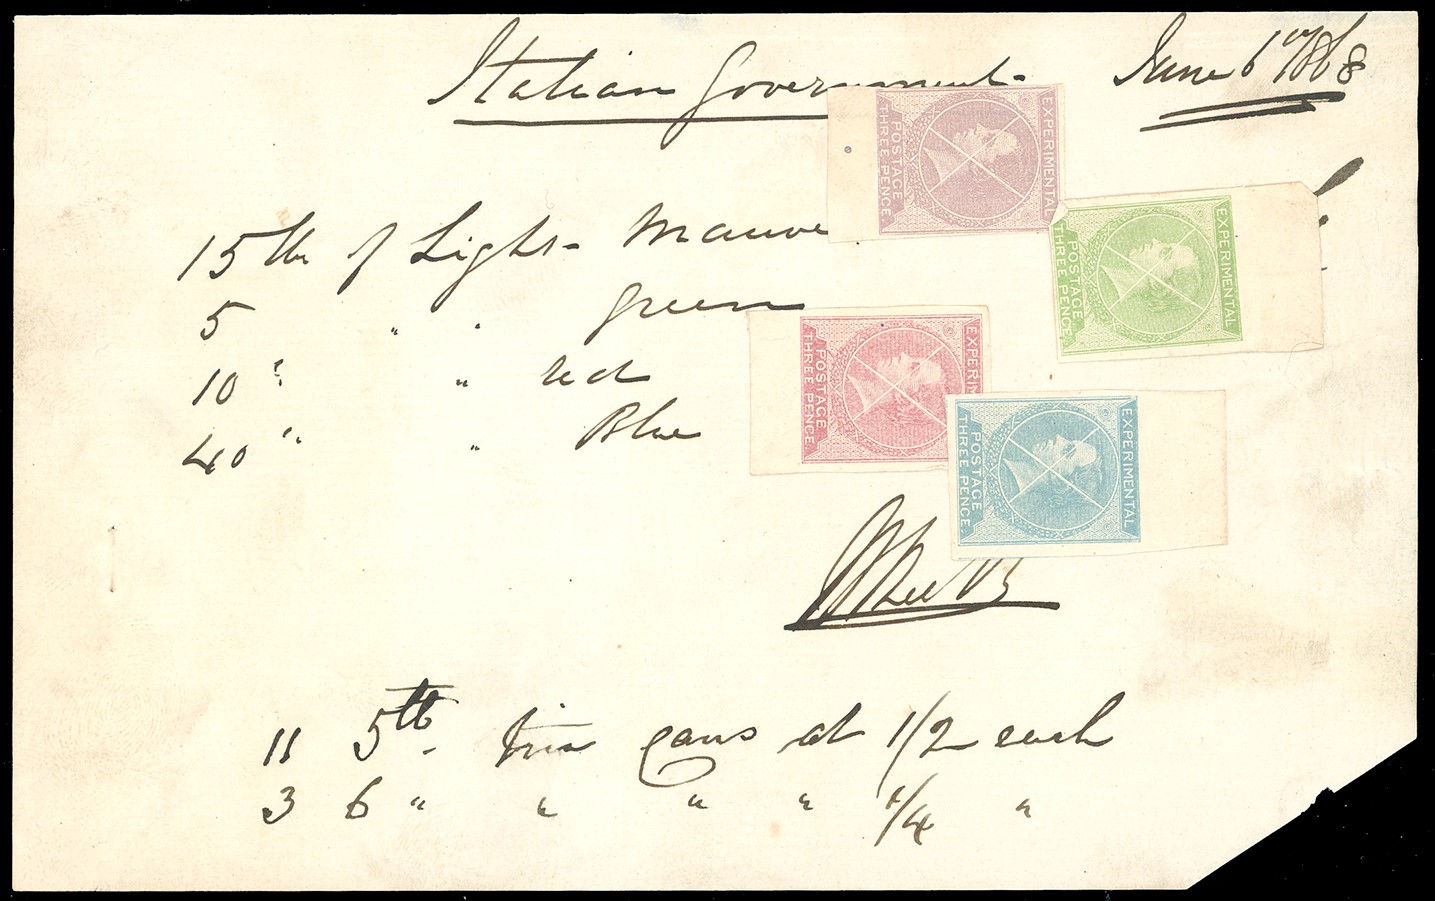 Italian Government June 6th 1868
15 lbs of Light Mauve
5 " " green
10 " " red
40 " " Blue
11 5lb tin cans at 1/2 each
3 6 " " " " 1/4 "
EXPERIMENTAL
POSTAGE
THREE PENCE
EXPERIMENTAL
POSTAGE
THREE PENCE
EXPERIM
POSTAGE
THREE PENCE
EXPERIMENTAL
POSTAGE
THREE PENCE